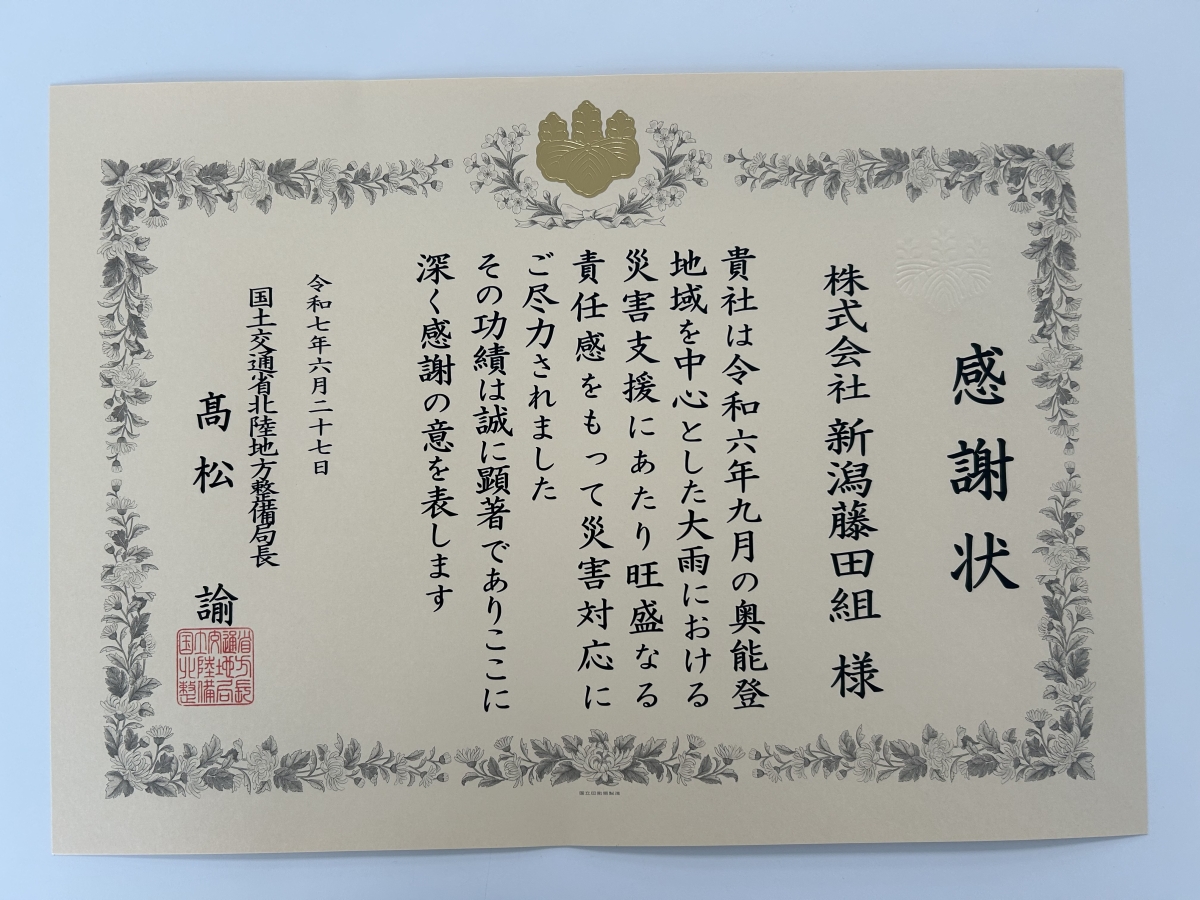 感謝状
株式会社 新潟藤田組 様
貴社は令和六年九月の奥能登
地域を中心とした大雨における
災害支援にあたり旺盛なる
責任感をもって災害対応に
ご尽力されました
その功績は誠に顕著でありここに
深く感謝の意を表します
令和七年六月二十七日
国土交通省北陸地方整備局長
髙松 諭